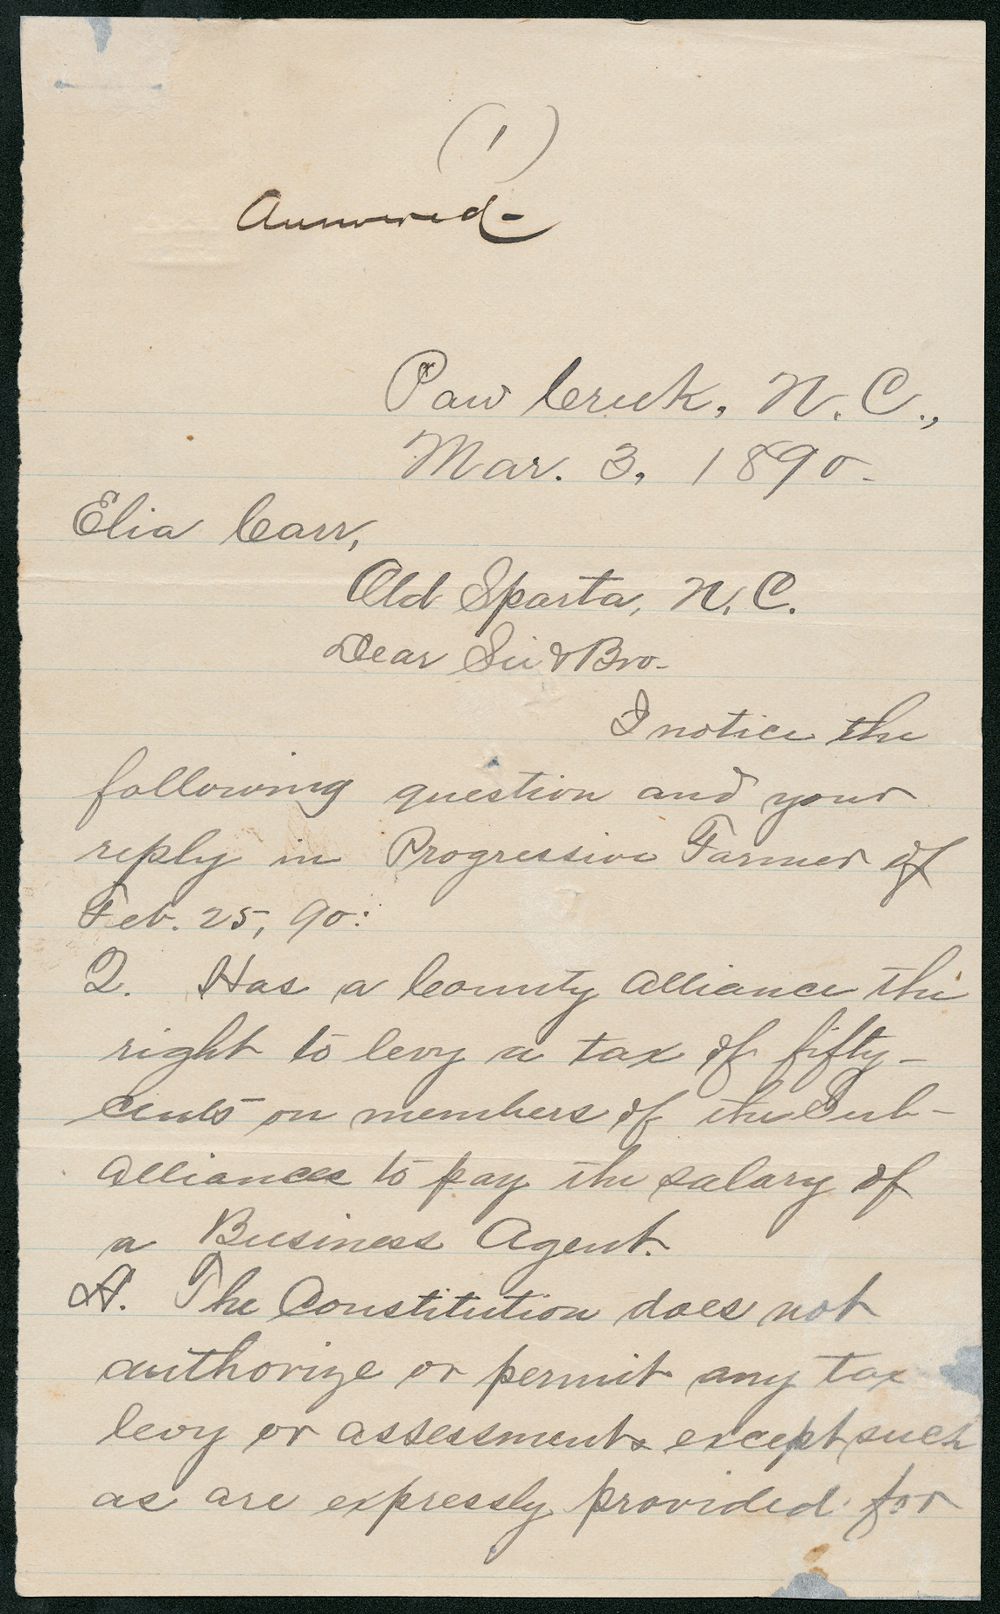 (1)
Answered-
Paw Creek, N. C.,
Mar. 3, 1890-
Elia Carr,
Old Sparta, N. C.
Dear Sir & Bro-
I notice the
following question and your
reply in Progressive Farmer of
Feb. 25, 90:
Q. Has a County Alliance the
right to levy a tax of fifty-
cents on members of the Sub-
Alliances to pay the salary of
a Business Agent.
A. The Constitution does not
authorize or permit any tax
levy or assessments except such
as are expressly provided for